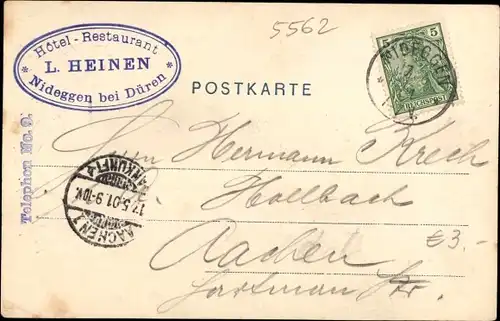 5562
Hôtel-Restaurant
* L. HEINEN *
Nideggen bei Düren
Telephon No. 9.
POSTKARTE
5 5
REICHSPOST
NIDEGGEN
Herrn Hermann Krech
Hollbach
Aachen
£3-
AACHEN 1
17.5.01.9-10V.
ANKUNFT